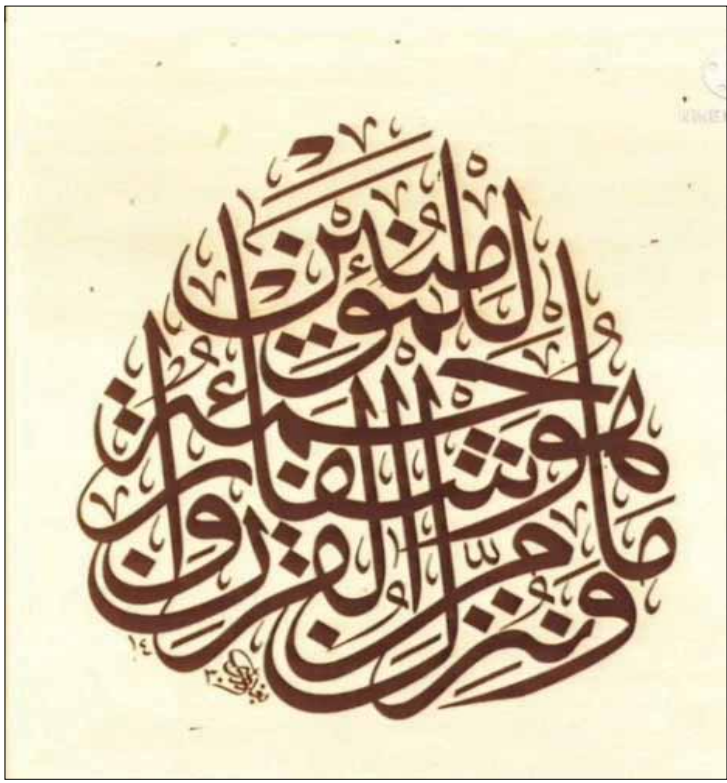 وَنُنَزِّلُ مِنَ الْقُرْآنِ مَا
هُوَ شِفَاءٌ وَرَحْمَةٌ
لِلْمُؤْمِنِينَ
١٤٣٠